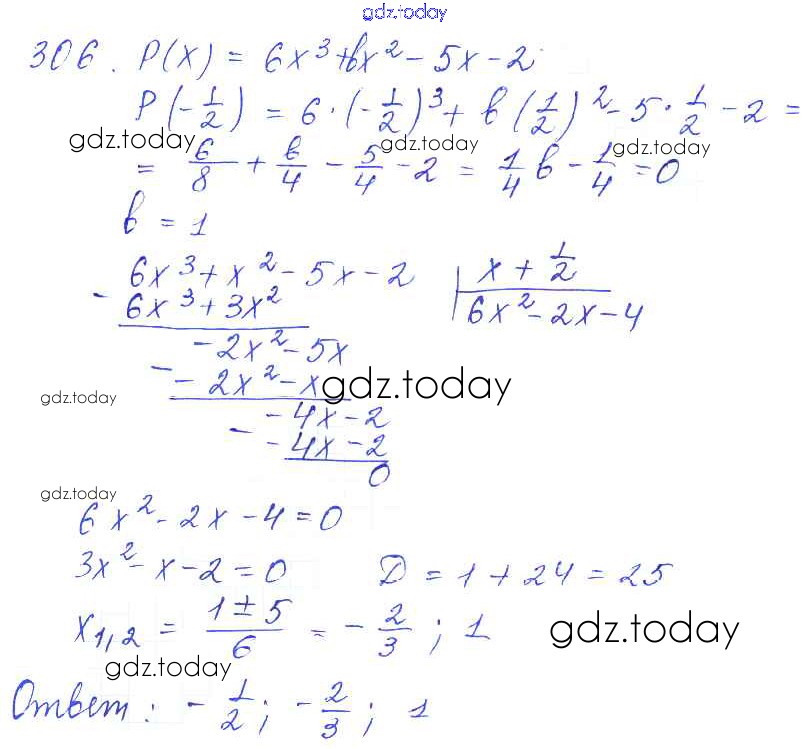 gdz.today
306. P(x) = 6x³ + bx² - 5x - 2
P(-1/2) = 6·(-1/2)³ + b(1/2)² - 5·1/2 - 2 =
gdz.today gdz.today gdz.today
= 6/8 + b/4 - 5/4 - 2 = 1/4 b - 1/4 = 0
b = 1
6x³ + x² - 5x - 2 | x + 1/2
- 6x³ + 3x² 6x² - 2x - 4
- 2x² - 5x
- - 2x² - x
gdz.today gdz.today
- 4x - 2
- - 4x - 2
0
gdz.today
6x² - 2x - 4 = 0
3x² - x - 2 = 0 D = 1 + 24 = 25
x1,2 = (1 ± 5)/6 = - 2/3 ; 1
gdz.today
gdz.today
Ответ: - 1/2; - 2/3; 1